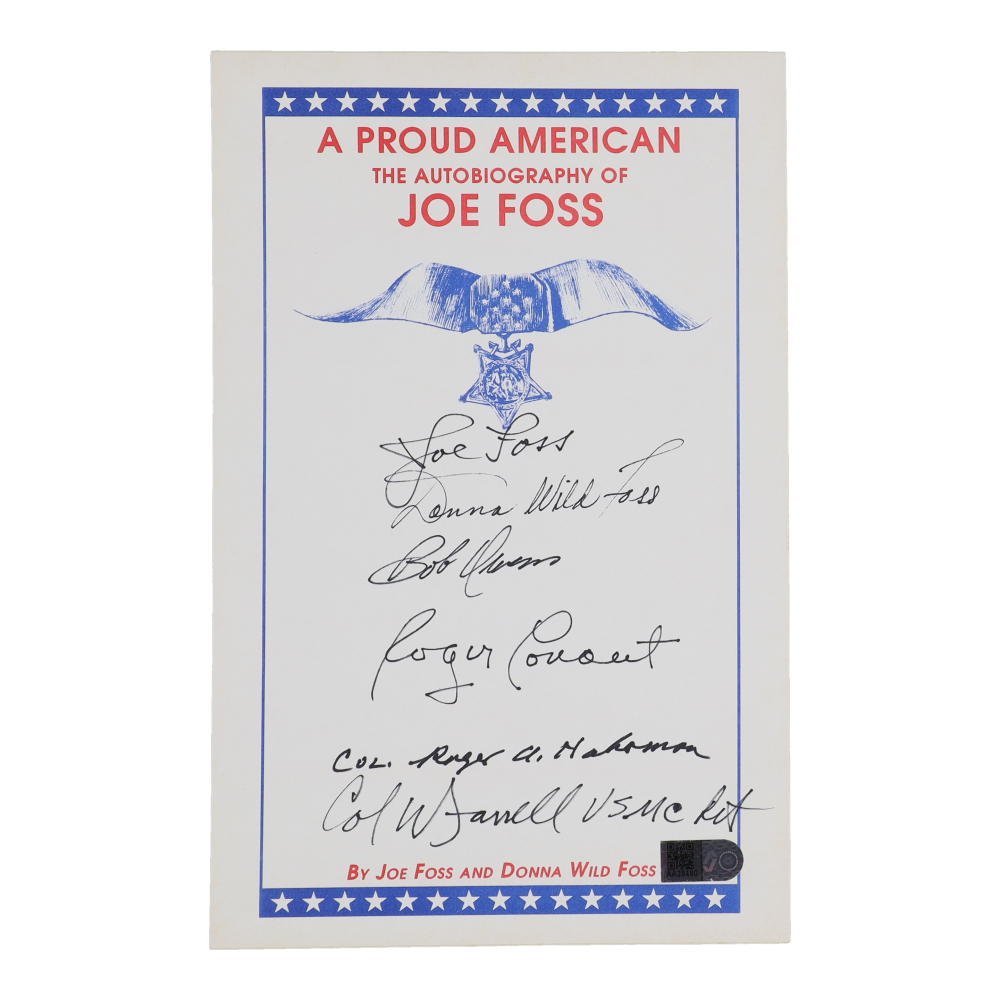 A PROUD AMERICAN
THE AUTOBIOGRAPHY OF
JOE FOSS
Joe Foss
Donna Wild Foss
Bob Owens
Roger Conant
COL. Roger A. Haberman
Col W Farrell USMC Ret
BY JOE FOSS AND DONNA WILD FOSS